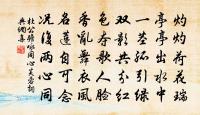 灼灼荷花瑞
亭亭出水中
一茎孤引绿
双影共分红
色夺歌人脸
香乱舞衣风
名莲自可念
况復两心同
杜公瞻咏同心芙蓉